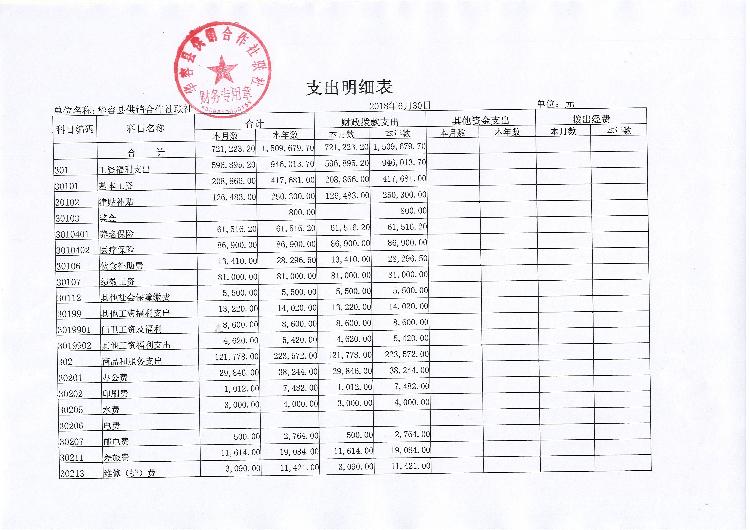 华容县供销合作社联社
财务专用章
支出明细表
单位名称：华容县供销合作社联社 2018年6月30日 单位：元
科目编码 科目名称 合计 财政拨款支出 其他资金支出 拨出经费
本月数 本年数 本月数 本年数 本月数 本年数 本月数 本年数
合 计 721,223.20 1,509,679.70 721,223.20 1,509,679.70
301 工资福利支出 596,895.20 946,013.70 596,895.20 946,013.70
30101 基本工资 208,866.00 417,681.00 208,866.00 417,681.00
30102 津贴补贴 126,483.00 250,300.00 126,483.00 250,300.00
30103 奖金 800.00 800.00
3010401 养老保险 61,516.20 61,516.20 61,516.20 61,516.20
3010402 医疗保险 86,900.00 86,900.00 86,900.00 86,900.00
30106 伙食补助费 13,410.00 28,296.50 13,410.00 28,296.50
30107 绩效工资 81,000.00 81,000.00 81,000.00 81,000.00
30112 其他社会保障缴费 5,500.00 5,500.00 5,500.00 5,500.00
30199 其他工资福利支出 13,220.00 14,020.00 13,220.00 14,020.00
3019901 临工工资及福利 8,600.00 8,600.00 8,600.00 8,600.00
3019902 其他工资福利支出 4,620.00 5,420.00 4,620.00 5,420.00
302 商品和服务支出 121,778.00 223,572.00 121,778.00 223,572.00
30201 办公费 29,846.00 38,244.00 29,846.00 38,244.00
30202 印刷费 1,012.00 7,482.00 1,012.00 7,482.00
30205 水费 3,000.00 4,000.00 3,000.00 4,000.00
30206 电费
30207 邮电费 500.00 2,764.00 500.00 2,764.00
30211 差旅费 11,614.00 19,084.00 11,614.00 19,084.00
30213 维修（护）费 3,090.00 11,421.00 3,090.00 11,421.00